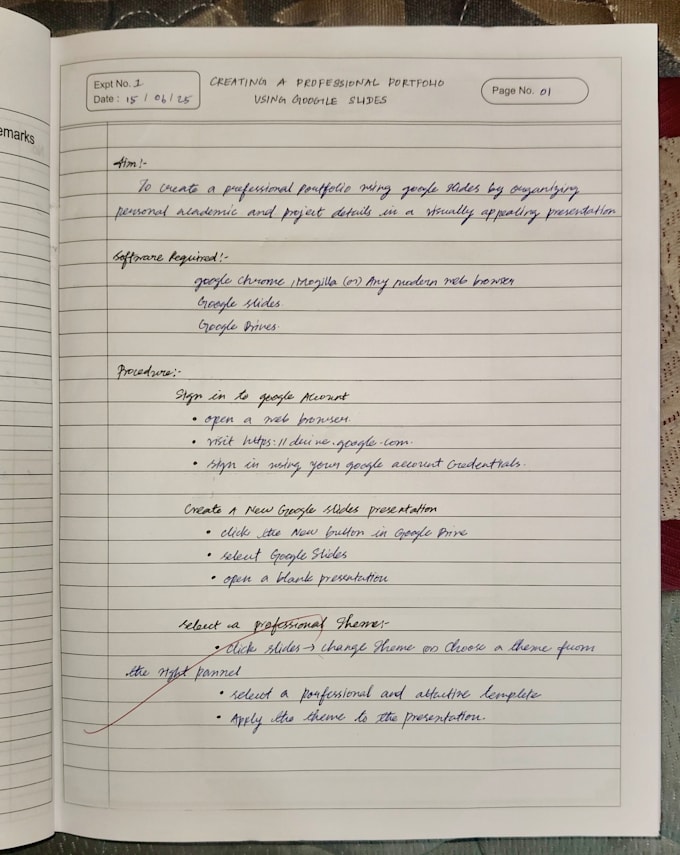 emarks
Expt No. 1
Date : 15 / 06 / 25
CREATING A PROFESSIONAL PORTFOLIO
USING GOOGLE SLIDES
Page No. 01
Aim:-
To create a professional portfolio using google slides by organizing
personal academic and project details in a visually appealing presentation
Software Required:-
google chrome, Mozilla (or) Any modern web browser
Google slides.
Google Drives.
Procedure:-
Sign in to google Account
• open a web browser.
• visit https://drive.google.com.
• sign in using your google account credentials.
Create A New Google slides presentation
• click the New button in Google Drive
• select Google Slides
• open a blank presentation
select a professional Theme:-
• click slides → change Theme (or) choose a theme from
the right pannel
• select a porfessional and attactive template
• Apply the theme to the presentation.